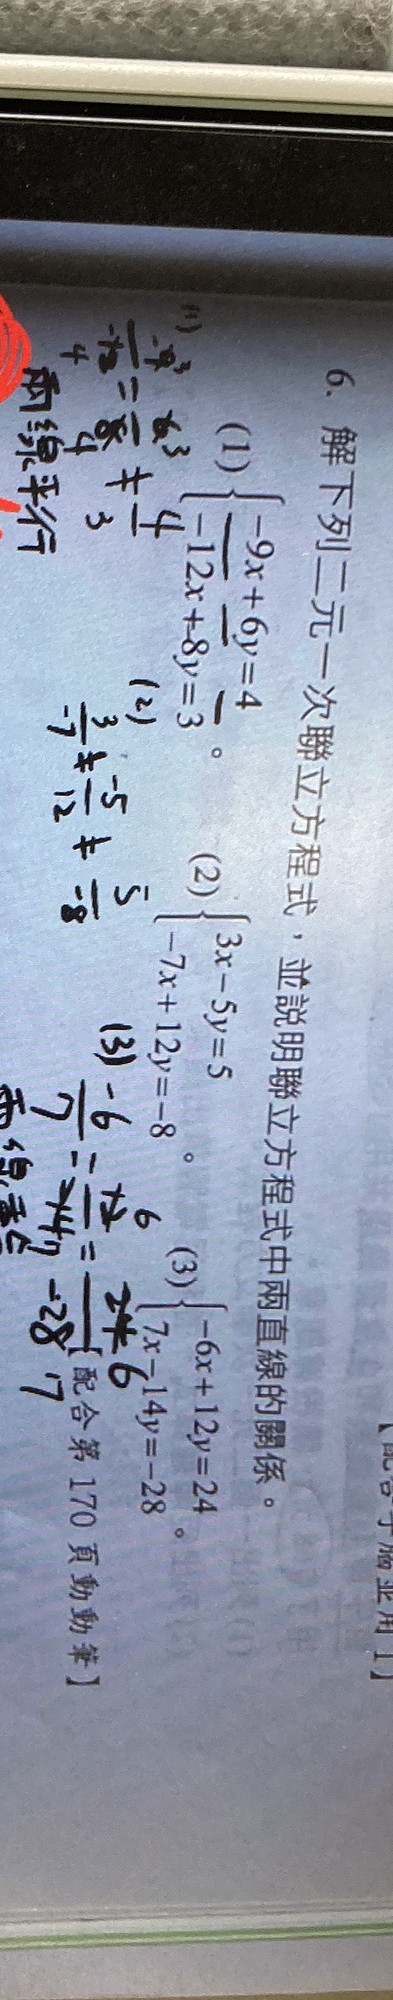 6. 解下列二元一次聯立方程式，並說明聯立方程式中兩直線的關係。
(1) { -9x+6y=4
-12x+8y=3 。
(2) { 3x-5y=5
-7x+12y=-8 。
(3) { -6x+12y=24
7x-14y=-28 。
【配合第 170 頁動動筆】
(1) -9 3 / -12 4 = 6 3 / 8 4 ≠ 4 / 3
兩線平行
(2) 3 / -7 ≠ -5 / 12 ≠ 5 / -8
(3) -6 / 7 = 12 6 / -14 7 = 24 6 / -28 7
兩線重合